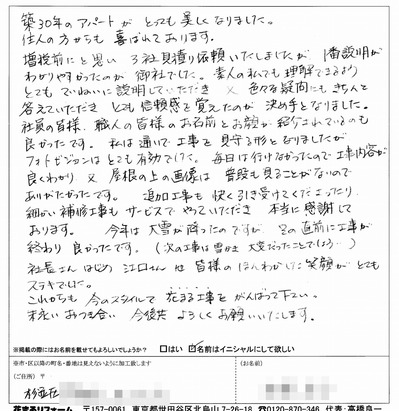 築30年のアパートが とっても美しくなりました。
住人の方からも 喜ばれております。
増税前にと思い 3社見積り依頼いたしましたが 1番説明が
わかりやすかったのが 御社でした。素人の私でも理解できるよう
とても ていねいに説明していただき 又 色々な疑問にも きちんと
答えていただき とても信頼感を覚えたのが 決め手となりました。
社員の皆様、職人の皆様のお名前とお顔が紹介されているのも
良かったです。私は通いで工事を見守る形となりましたが
フォトガジョンはとても有効でした。毎日は行けなかったので工事内容が
良くわかり 又 屋根の上の画像は 普段も見ることがないので
ありがたかったです。 追加工事も快く引き受けてくださったり
細かい補修工事も サービスでやっていただき 本当に感謝して
おります。 今年は大雪が降ったのですが、その直前に工事が
終わり 良かったです。(次の工事は雪かき 大変だったことでしょう…)
社長さんはじめ 江口さん 他 皆様のほんわかした笑顔が とても
ステキでした。
これからも 今のスタイルで 花まる工事を がんばって下さい。
末永いおつき合い 今後共 よろしくお願いいたします。
※掲載の際にはお名前を載せてもよろしいでしょうか? □はい ☑名前はイニシャルにして欲しい
※市・区以降の町名・番地は見えないように加工致します
(ご住所) 〒
(お名前)
杉並区
花まるリフォーム 〒157-0061 東京都世田谷区北烏山7-26-18 ☎0120-870-346 代表:高橋良一